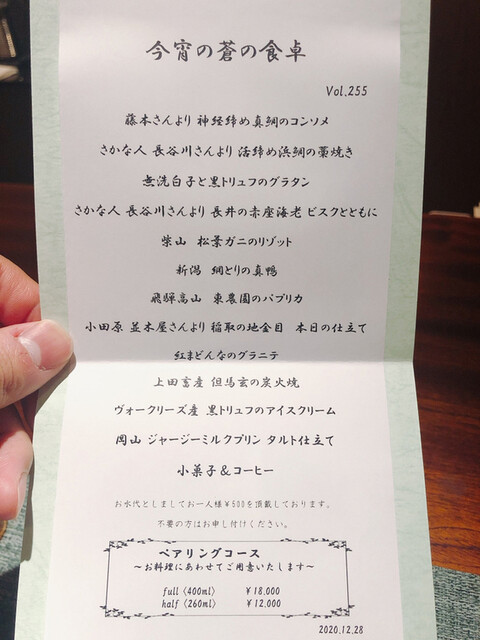 今宵の蒼の食卓
Vol.255
藤本さんより 神経締め真鯛のコンソメ
さかな人 長谷川さんより 活締め浜鯛の藁焼き
無洗白子と黒トリュフのグラタン
さかな人 長谷川さんより 長井の赤座海老 ビスクとともに
柴山 松葉ガニのリゾット
新潟 網とりの真鴨
飛騨高山 東農園のパプリカ
小田原 並木屋さんより 稲取の地金目 本日の仕立て
紅まどんなのグラニテ
上田畜産 但馬玄の炭火焼
ヴォークリーズ産 黒トリュフのアイスクリーム
岡山 ジャージーミルクプリン タルト仕立て
小菓子&コーヒー
お水代としましてお一人様¥500を頂戴しております。
不要の方はお申し付けください。
ペアリングコース
～お料理にあわせてご用意いたします～
full〈400ml〉 ¥18,000
half〈260ml〉 ¥12,000
2020.12.28